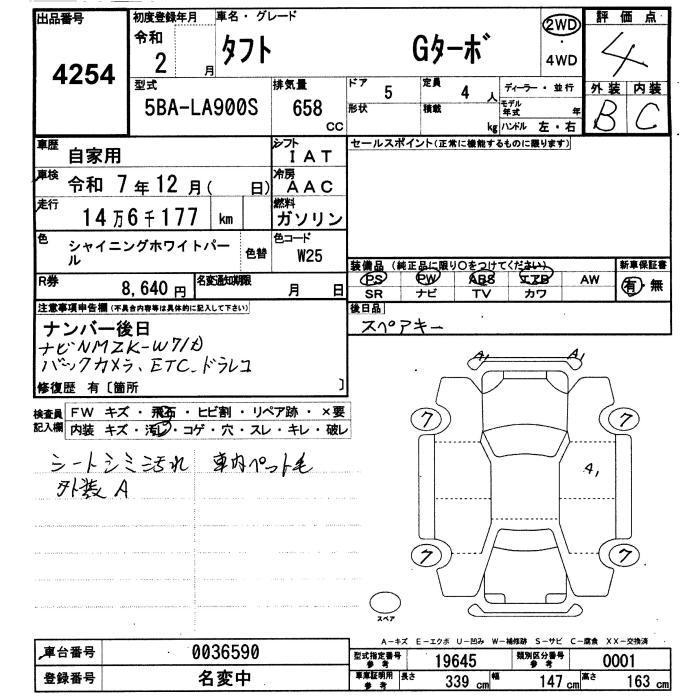 出品番号
4254
初度登録年月
令和
2 月
車名・グレード
タフト Gターボ
2WD
・
4WD
評価点
4
外装 内装
B C
型式
5BA-LA900S
排気量
658
CC
ドア
5
定員
4 人
ディーラー・並行
形状
積載
kg
モデル年式
年
ハンドル 左・右
車歴
自家用
シフト
IAT
車検
令和 7年12月( 日)
冷房
AAC
走行
14万6千177 km
燃料
ガソリン
色
シャイニングホワイトパール
色替
色コード
W25
R券
8,640円
名変通知期限
月 日
セールスポイント(正常に機能するものに限ります)
装備品 (純正品に限り○をつけてください)
PS PW ABS エアB AW
SR ナビ TV カワ
新車保証書
有・無
後日品
スペアキー
注意事項申告欄(不具合内容等は具体的に記入して下さい)
ナンバー後日
ナビNMZK-W71D
バックカメラ、ETC、ドラレコ
修復歴 有〔箇所 〕
検査員
記入欄
FW キズ・飛石・ヒビ割・リペア跡・×要
内装 キズ・汚レ・コゲ・穴・スレ・キレ・破レ
シートシミ汚れ 車内ペット毛
外装A
A1 A1
7 7
A1
7 7
スペア
A-キズ E-エクボ U-凹み W-補修跡 S-サビ C-腐食 XX-交換済
車台番号
0036590
登録番号
名変中
型式指定番号
参考
19645
類別区分番号
参考
0001
車庫証明用
参考
長さ
339 cm
幅
147 cm
高さ
163 cm